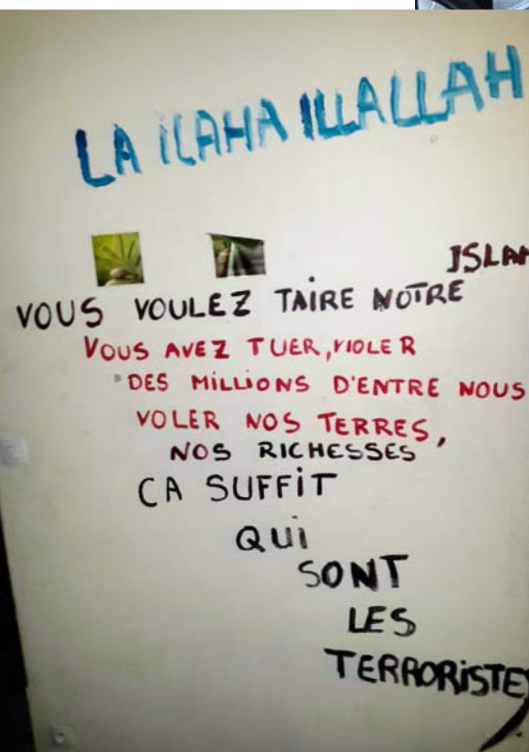 LA ILAHA ILLALLAH
VOUS VOULEZ TAIRE NOTRE ISLAM
VOUS AVEZ TUER, VIOLER
DES MILLIONS D'ENTRE NOUS
VOLER NOS TERRES,
NOS RICHESSES,
CA SUFFIT
QUI
SONT
LES
TERRORISTES